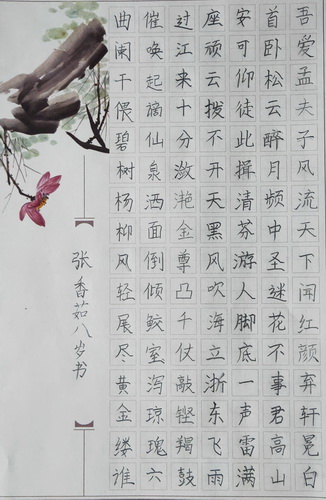 吾爱孟夫子风流天下闻红颜弃轩冕白
首卧松云醉月频中圣迷花不事君高山
安可仰徒此揖清芬游人脚底一声雷满
座顽云拨不开天黑风吹海立浙东飞雨
过江来十分潋滟金尊凸千仗敲铿羯鼓
催唤起谪仙泉洒面倒倾鲛室泻琼瑰六
曲阑干偎碧树杨柳风轻展尽黄金缕谁
张香茹八岁书